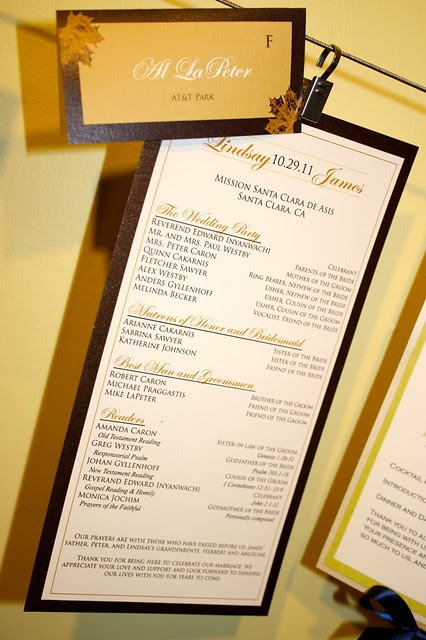 F
Al LaPeter
AT&T Park
Lindsay 10.29.11 James
Mission Santa Clara de Asis
Santa Clara, CA
The Wedding Party
Reverend Edward Inyanwachi Celebrant
Mr. and Mrs. Paul Westby Parents of the Bride
Mrs. Peter Caron Mother of the Groom
Quinn Cakarnis Ring Bearer, Nephew of the Bride
Fletcher Sawyer Usher, Nephew of the Bride
Alex Westby Usher, Cousin of the Bride
Anders Gyllenhoff Usher, Cousin of the Groom
Melinda Becker Vocalist, Friend of the Bride
Matrons of Honor and Bridesmaid
Arianne Cakarnis Sister of the Bride
Sabrina Sawyer Sister of the Bride
Katherine Johnson Friend of the Bride
Best Man and Groomsmen
Robert Caron Brother of the Groom
Michael Praggastis Friend of the Groom
Mike LaPeter Friend of the Groom
Readers
Amanda Caron Sister-in-law of the Groom
Old Testament Reading Genesis 1:26-31
Greg Westby Godfather of the Bride
Responsorial Psalm Psalm 103:1-18
Johan Gyllenhoff Cousin of the Groom
New Testament Reading 1 Corinthians 12:31-13:8
Reverand Edward Inyanwachi Celebrant
Gospel Reading & Homily John 2:1-11
Monica Jochim Godmother of the Bride
Prayers of the Faithful Personally composed
Our prayers are with those who have passed before us. James'
father, Peter, and Lindsay's grandparents, Herbert and Angeline
Thank you for being here to celebrate our marriage. We
appreciate your love and support and look forward to sharing
our lives with you for years to come.
Cocktail
Introduction
Dinner and Da
Thank you to al
for being with u
your presence an
so much to us, an